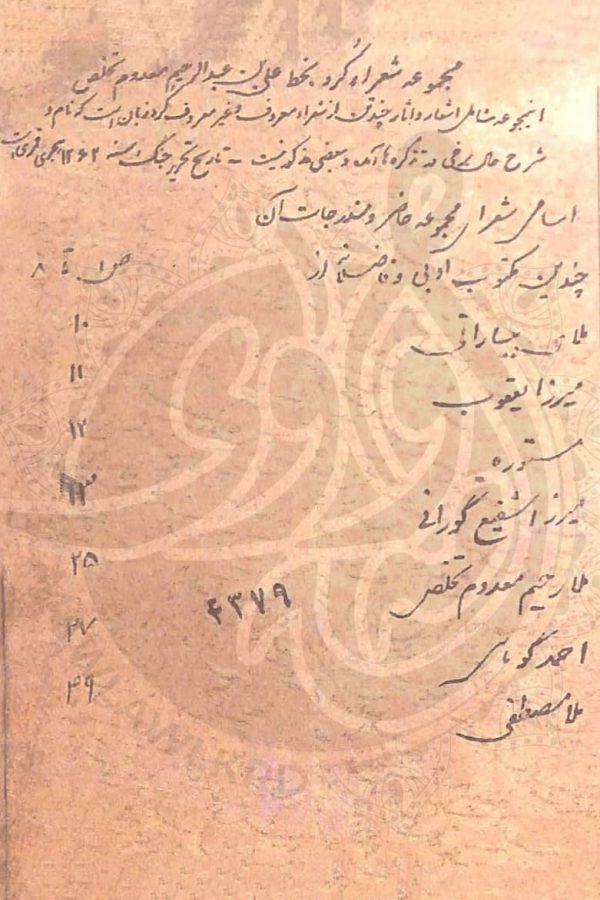 مجموعه شعراء کُرد بخط علی بن عبدالرحیم معدوم تخلص
اینمجموعه شامل اشعار و آثار چند تن از شعراء معروف و غیر معروف کرد زبان است که نام و
شرح حال برخی در تذکره‌ها آمده و بعضی مذکور نیست - تاریخ تحریر جنگ سنه ۱۲۶۲ هجری قمری است
اسامی شعرای مجموعه حاضر و مندرجات آن
چندین مکتوب ادبی و فاضلانه از ص ۱ تا ۸
ملای بیسارانی ۱۰
میرزا یعقوب ۱۱
مستوره ۱۲
میرزا شفیع گورانی ۱۳
ملا رحیم معدوم تخلص ۲۵
۶۳۷۹
احمد کوماسی ۲۷
ملا مصطفی ۴۹
KURD